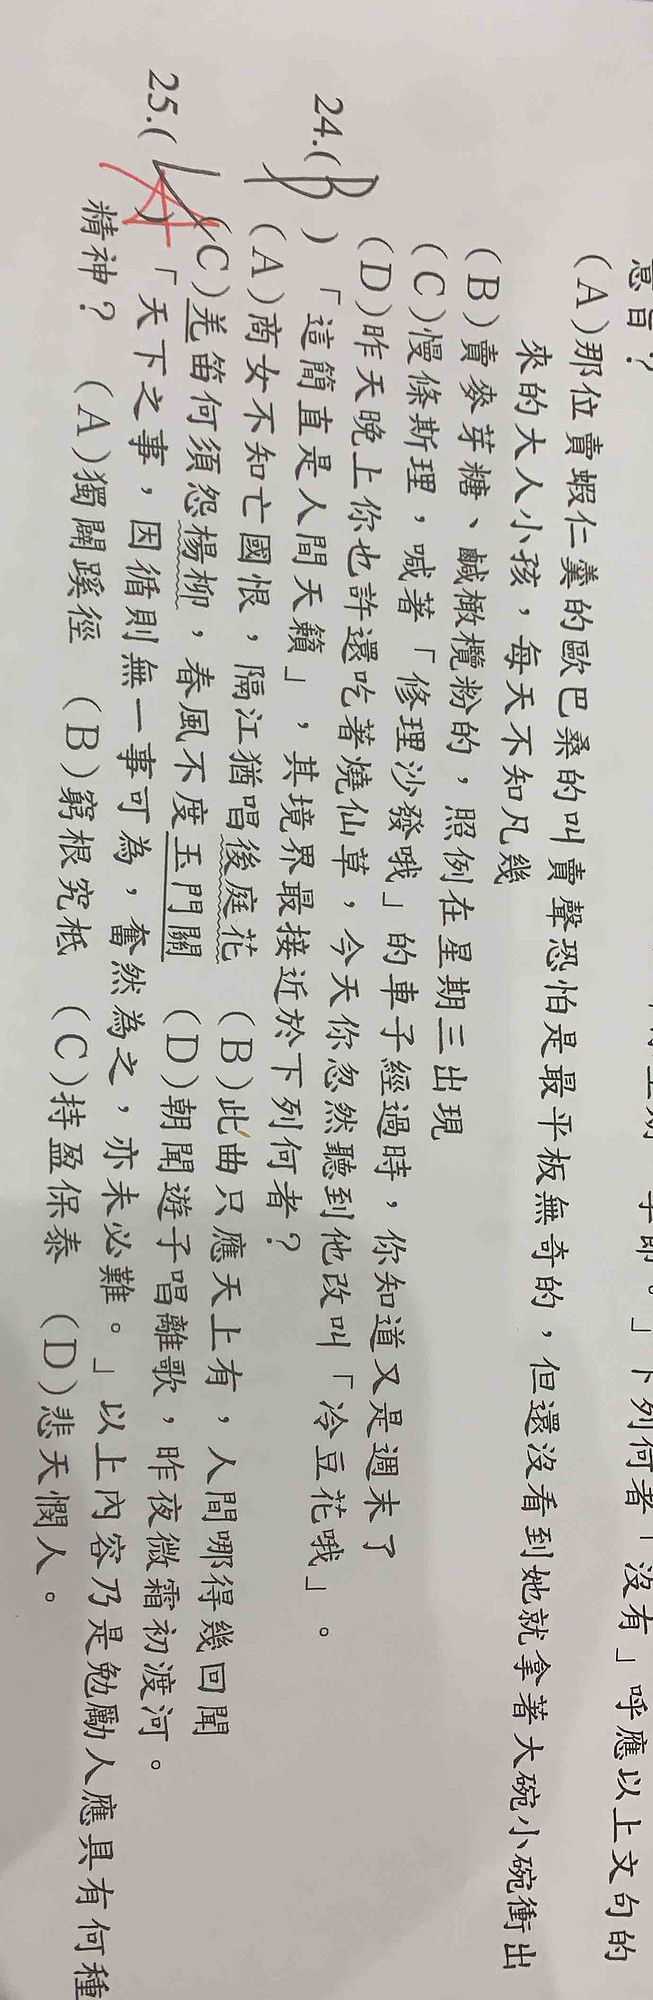 下列何者「沒有」呼應以上文句的
意旨？
(A)那位賣蝦仁羹的歐巴桑的叫賣聲恐怕是最平板無奇的，但還沒看到她就拿著大碗小碗衝出
來的大人小孩，每天不知凡幾
(B)賣麥芽糖、鹹橄欖粉的，照例在星期三出現
(C)慢條斯理，喊著「修理沙發哦」的車子經過時，你知道又是週末了
(D)昨天晚上你也許還吃著燒仙草，今天你忽然聽到他改叫「冷豆花哦」。
24.(B)「這簡直是人間天籟」，其境界最接近於下列何者？
(A)商女不知亡國恨，隔江猶唱後庭花 (B)此曲只應天上有，人間哪得幾回聞
(C)羌笛何須怨楊柳，春風不度玉門關 (D)朝聞遊子唱離歌，昨夜微霜初渡河。
25.(A)「天下之事，因循則無一事可為，奮然為之，亦未必難。」以上內容乃是勉勵人應具有何種
精神？ (A)獨闢蹊徑 (B)窮根究柢 (C)持盈保泰 (D)悲天憫人。